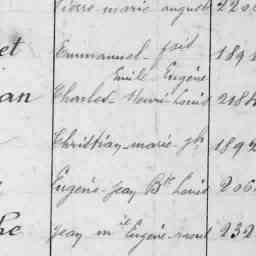 Pierre marie august 220
et Emmanuel - fait 189
Emile Eugène
an Charles Henri Louis 2184
Christian - marie - jh 1892
Eugène - Jean Bte Louis 206
he Jean m el Eugène 232